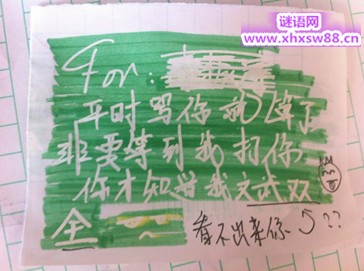 谜语网
www.xhxsw88.cn
For:
平时骂你就算了
非要等到我打你
你才知道我文武双
全
看不出来你
??